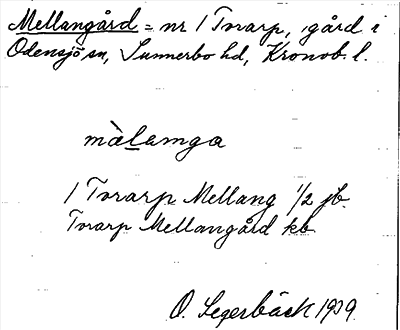 Mellangård = nr 1 Torarp, gård i
Odensjö sn, Sunnerbo hd, Kronob. l.
màlamga
1 Torarp Mellang 1/2 jb.
Torarp Mellangård kb.
O. Segerbäck 1939.